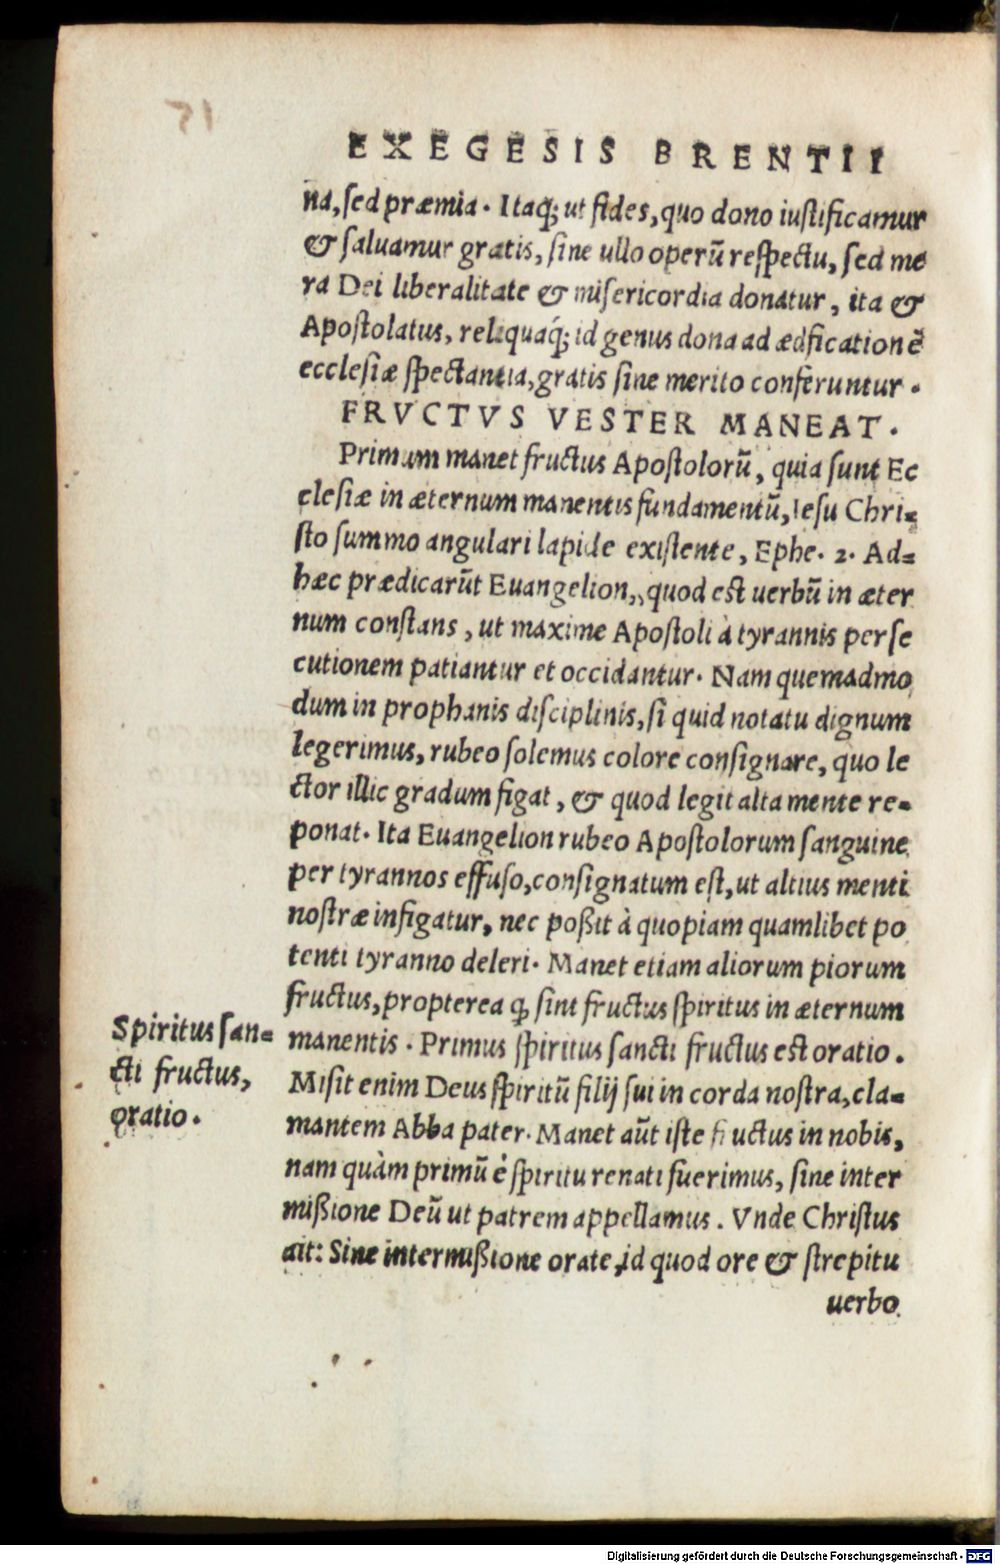 EXEGESIS BRENTII
na, sed præmia. Itaq; ut fides, quo dono iustificamur
& saluamur gratis, sine ullo operũ respectu, sed me
ra Dei liberalitate & misericordia donatur, ita &
Apostolatus, reliquaq́; id genus dona ad ædficationẽ
ecclesiæ spectantia, gratis sine merito conferuntur.
FRVCTVS VESTER MANEAT.
Primum manet fructus Apostolorũ, quia sunt Ec
clesiæ in æternum manentis fundamentũ, Iesu Chri-
sto summo angulari lapide existente, Ephe. 2. Ad-
hæc prædicarũt Euangelion, quod est uerbũ in æter
num constans, ut maxime Apostoli à tyrannis perse
cutionem patiantur et occidantur. Nam quemadmo
dum in prophanis disciplinis, si quid notatu dignum
legerimus, rubeo solemus colore consignare, quo le
ctor illic gradum figat, & quod legit alta mente re-
ponat. Ita Euangelion rubeo Apostolorum sanguine
per tyrannos effuso, consignatum est, ut altius menti
nostræ infigatur, nec poßit à quopiam quamlibet po
tenti tyranno deleri. Manet etiam aliorum piorum
fructus, propterea ꝙ sint fructus spiritus in æternum
manentis. Primus spiritus sancti fructus est oratio.
Misit enim Deus spiritũ filij sui in corda nostra, cla-
mantem Abba pater. Manet aũt iste fructus in nobis,
nam quàm primũ è spiritu renati fuerimus, sine inter
mißione Deũ ut patrem appellamus. Vnde Christus
ait: Sine intermißione orate, id quod ore & strepitu
uerbo
Spiritus san-
cti fructus,
oratio.
Digitalisierung gefördert durch die Deutsche Forschungsgemeinschaft - DFG